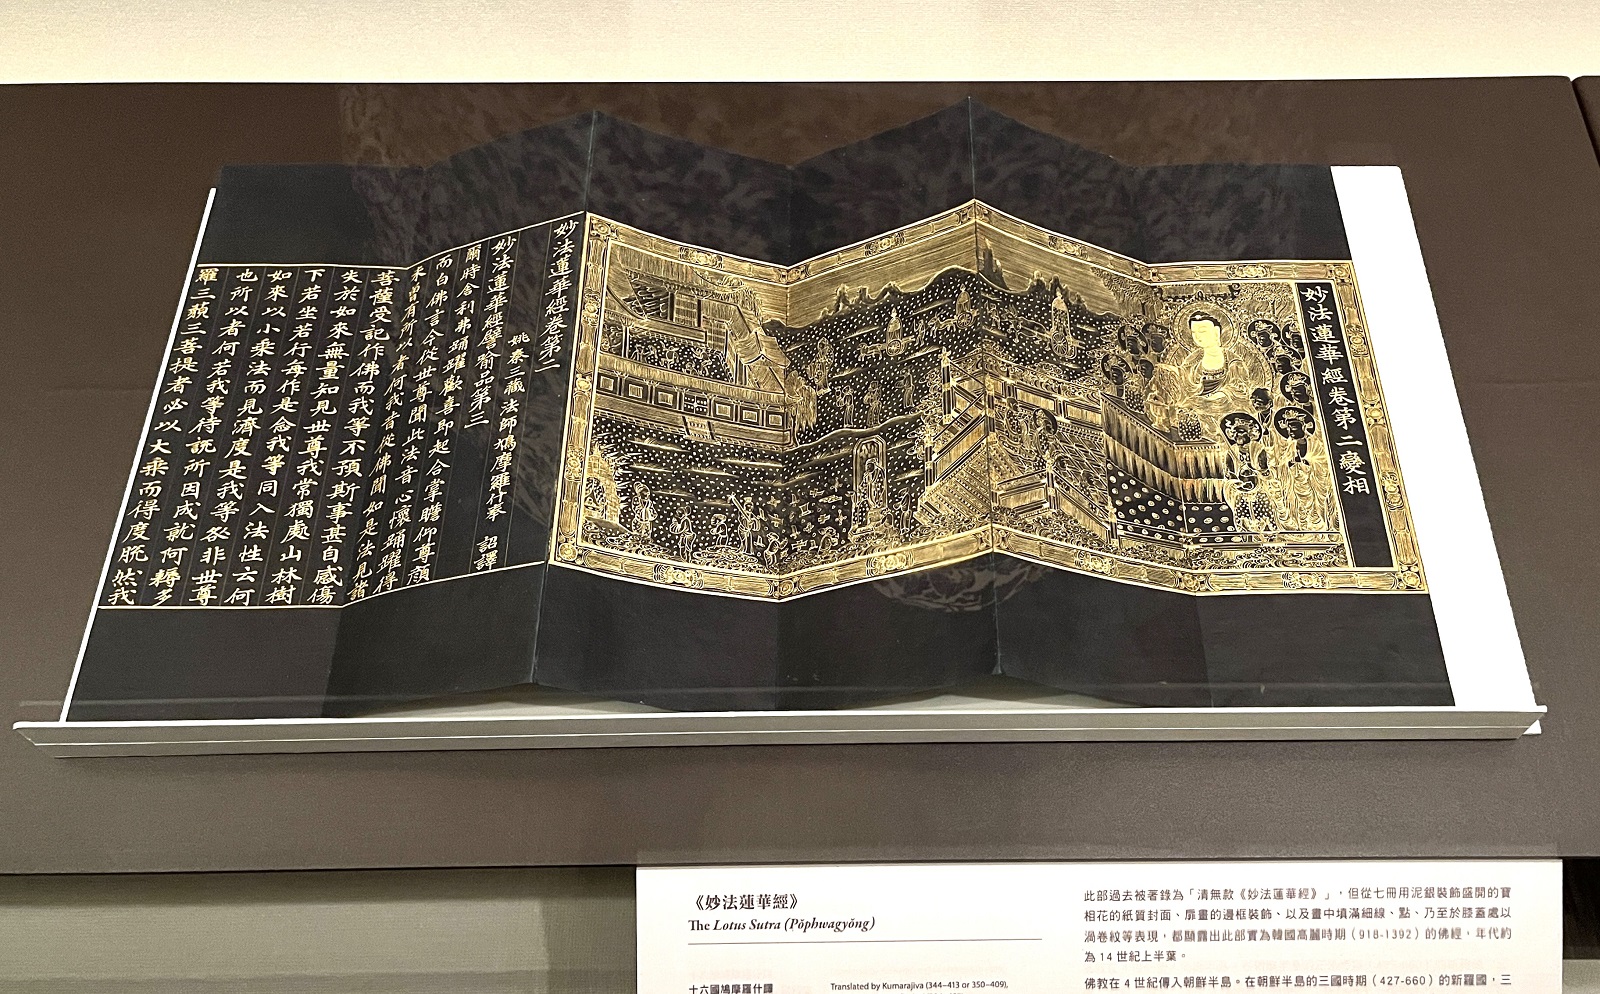 妙法蓮華經卷第二變相
妙法蓮華經卷第二
姚秦三藏法師鳩摩羅什奉 詔譯
妙法蓮華經譬喻品第三
爾時舍利弗踊躍歡喜即起合掌瞻仰尊顏
而白佛言今從世尊聞此法音心懷踊躍得
未曾有所以者何我昔從佛聞如是法見諸
菩薩受記作佛而我等不預斯事甚自感傷
失於如來無量知見世尊我常獨處山林樹
下若坐若行每作是念我等同入法性云何
如來以小乘法而見濟度是我等咎非世尊
也所以者何若我等待說所因成就阿耨多
羅三藐三菩提者必以大乘而得度脫然我
《妙法蓮華經》
The Lotus Sutra (Pŏphwagyŏng)
十六國鳩摩羅什譯
Translated by Kumarajiva (344–413 or 350–409),
此部過去被著錄為「清無款《妙法蓮華經》」，但從七冊用泥銀裝飾盛開的寶
相花的紙質封面、扉畫的邊框裝飾、以及畫中填滿細線、點、乃至於膝蓋處以
渦卷紋等表現，都顯露出此部實為韓國高麗時期（918-1392）的佛經，年代約
為 14 世紀上半葉。
佛教在 4 世紀傳入朝鮮半島。在朝鮮半島的三國時期（427-660）的新羅國，三